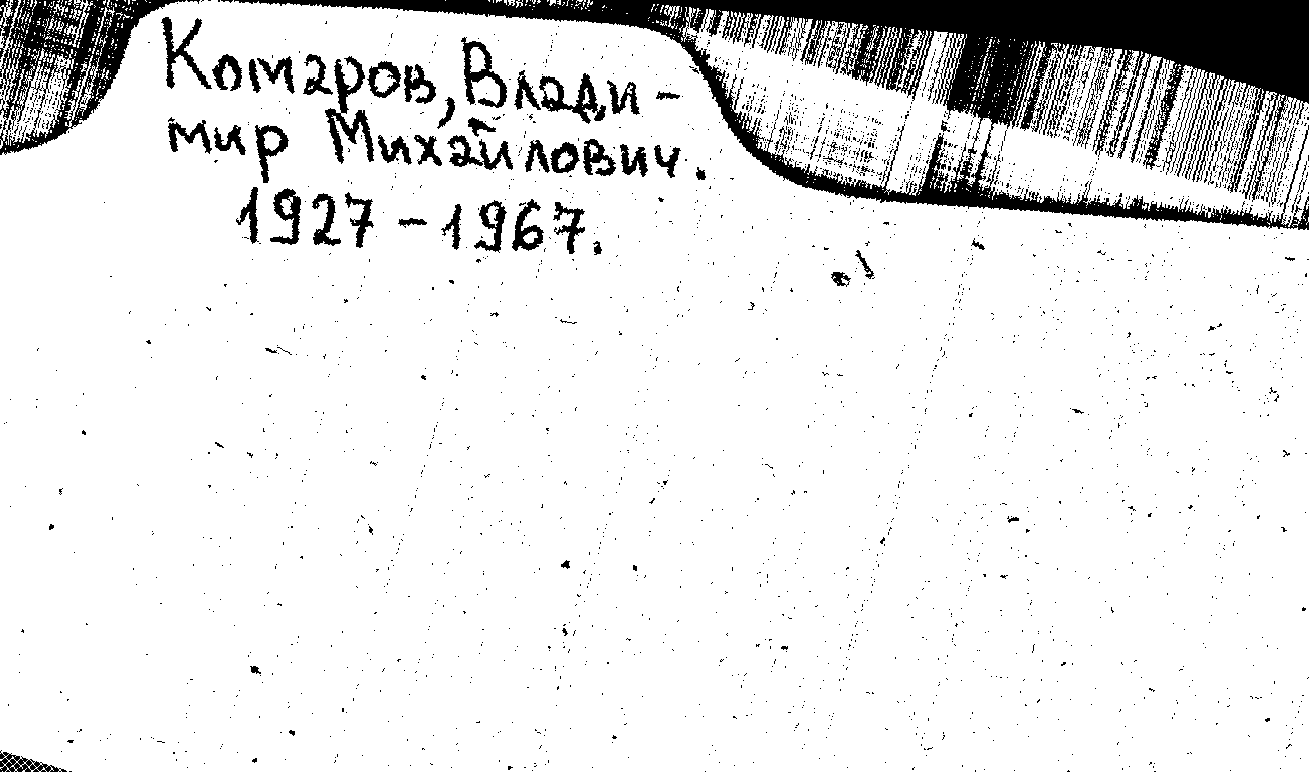 Комаров, Влади-
мир Михайлович.
1927-1967.